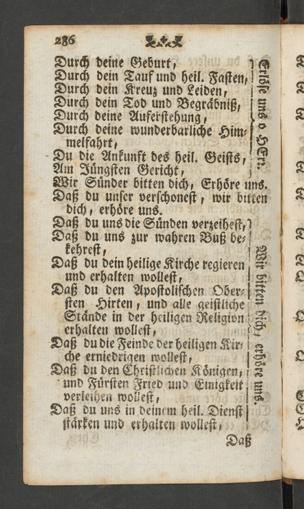 286
Durch deine Geburt,
Durch dein Tauf und heil. Fasten,
Durch dein Kreuz und Leiden,
Durch dein Tod und Begräbniß,
Durch deine Auferstehung,
Durch deine wunderbarliche Him-
melfahrt,
Du die Ankunft des heil. Geists,
Am Jüngsten Gericht,
Erlöse uns o HErr.
Wir Sünder bitten dich, Erhöre uns.
Daß du unser verschonest, wir bitten
dich, erhöre uns.
Daß du uns die Sünden verzeihest,
Daß du uns zur wahren Buß be-
kehrest,
Daß du dein heilige Kirche regieren
und erhalten wollest,
Daß du den Apostolischen Ober-
sten Hirten, und alle geistliche
Stände in der heiligen Religion
erhalten wollest,
Daß du die Feinde der heiligen Kir-
che erniedrigen wollest,
Daß du den Christlichen Königen,
und Fürsten Fried und Einigkeit
verleihen wollest,
Daß du uns in deinem heil. Dienst
stärken und erhalten wollest,
Wir bitten dich, erhöre uns.
Daß